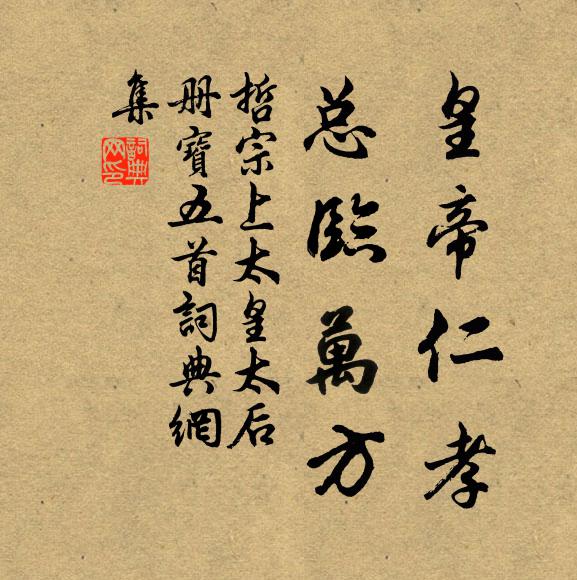 皇帝仁孝
总臨萬方
哲宗上太皇太后
册寶五首詞典網
集
詞典網印